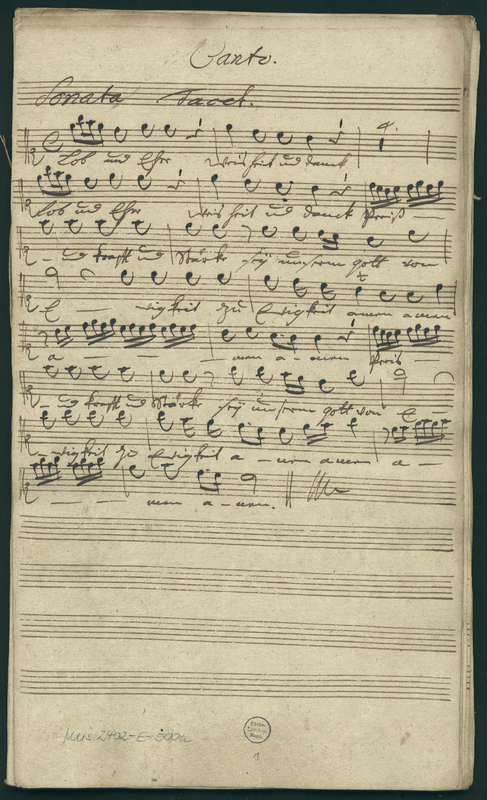 Canto.
Sonata Tacet.
4.
Lob und Ehr Weisheit und danck
Lob und Ehr Weisheit und danck Preiß —
— und krafft und Stärke sey unserm gott von
E — wigkeit zu Ewigkeit amen amen
a — — — men a – men Preis
— und krafft und Stärke sey unserm gott von E —
— wigkeit zu Ewigkeit a – men amen a —
— — men a – men.
Mus. 2402-E-500a
1